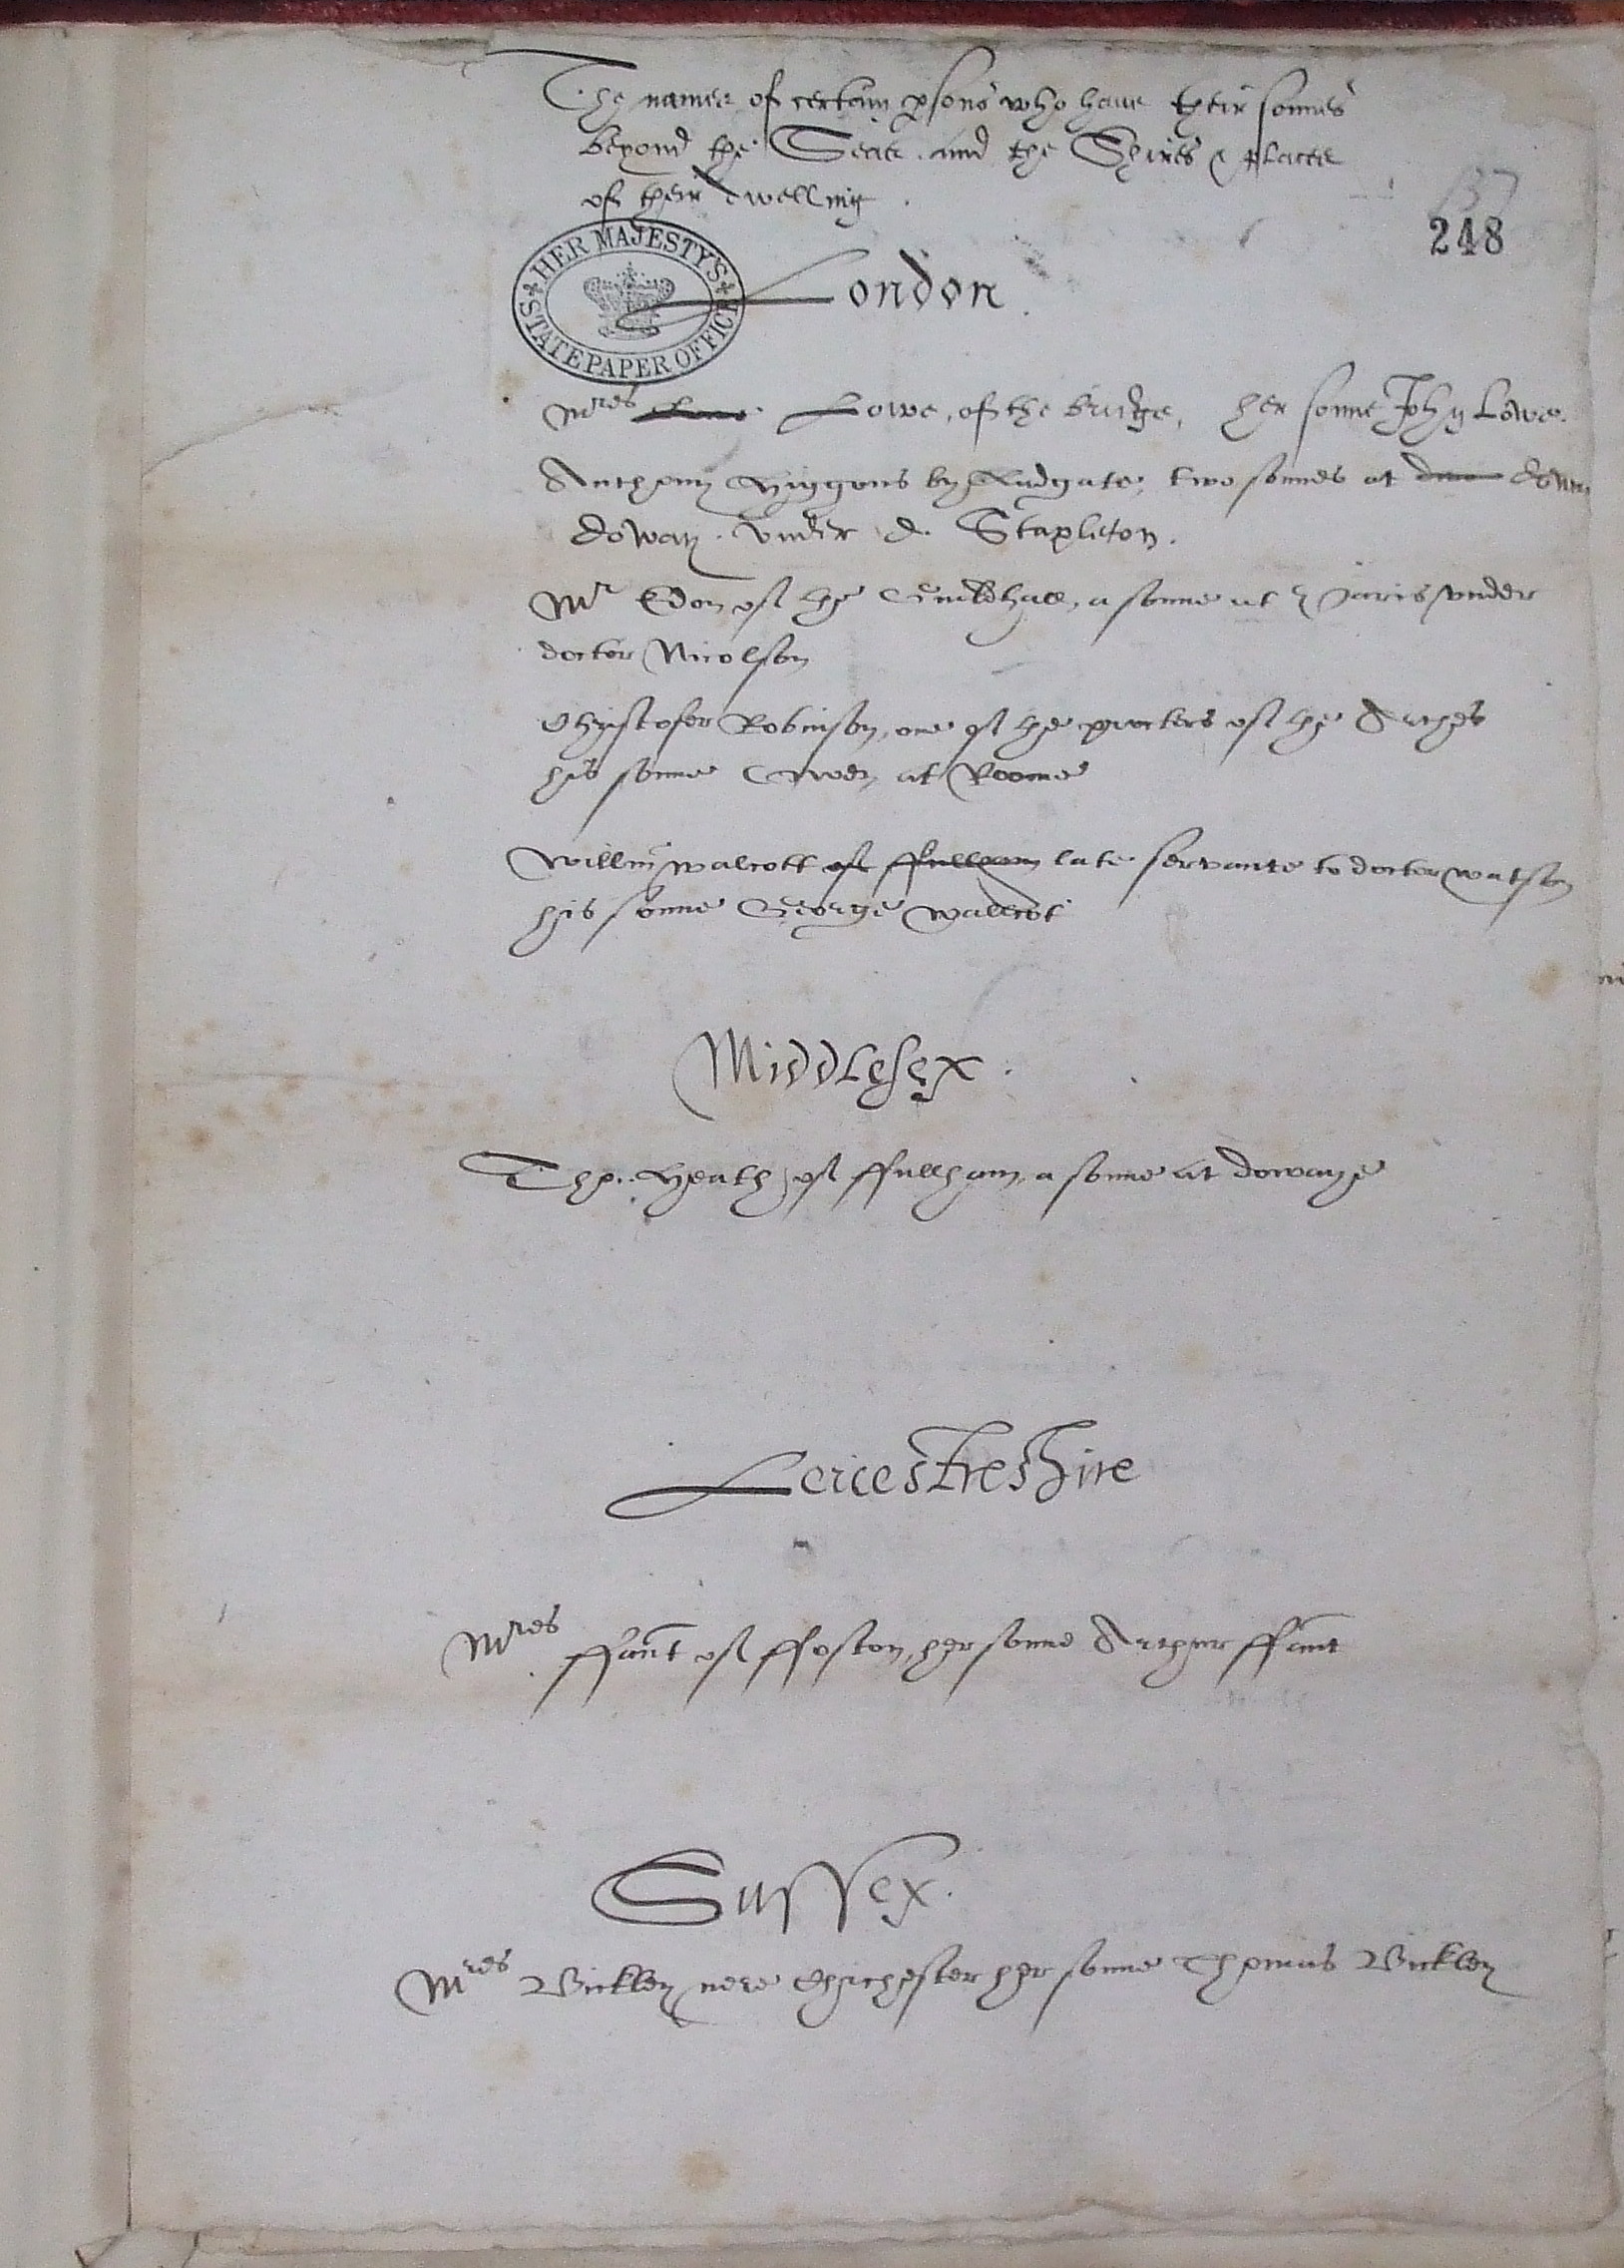 The names of certain psons who haue their sonnes
beyond the Seas. and the Shires & places
of their dwelling.
137
248
HER MAJESTY'S STATE PAPER OFFICE
London.
Mres Lowe, of the bridge, her sonne John Lowe.
Anthony Higgons by Ludgate, two sonnes at
doway. vnder d. Stapleton.
Mr Edon of the Guildhall, a sonne at Paris vnder
doctor Nicolson
Christofer Robinson, one of the procters of the Arches
his sonne Owen, at Roome
Willm walcott of ffullham late servante to doctor watson
his sonne George wallcot
Middlesex.
Tho. Heath of ffullham, a sonne at dowaye
Leicestreshire
Mres ffant of ffoston, her sonne Arthur ffant
Sussex.
Mres Bickley nere Chichester her sonne Thomas Bickley